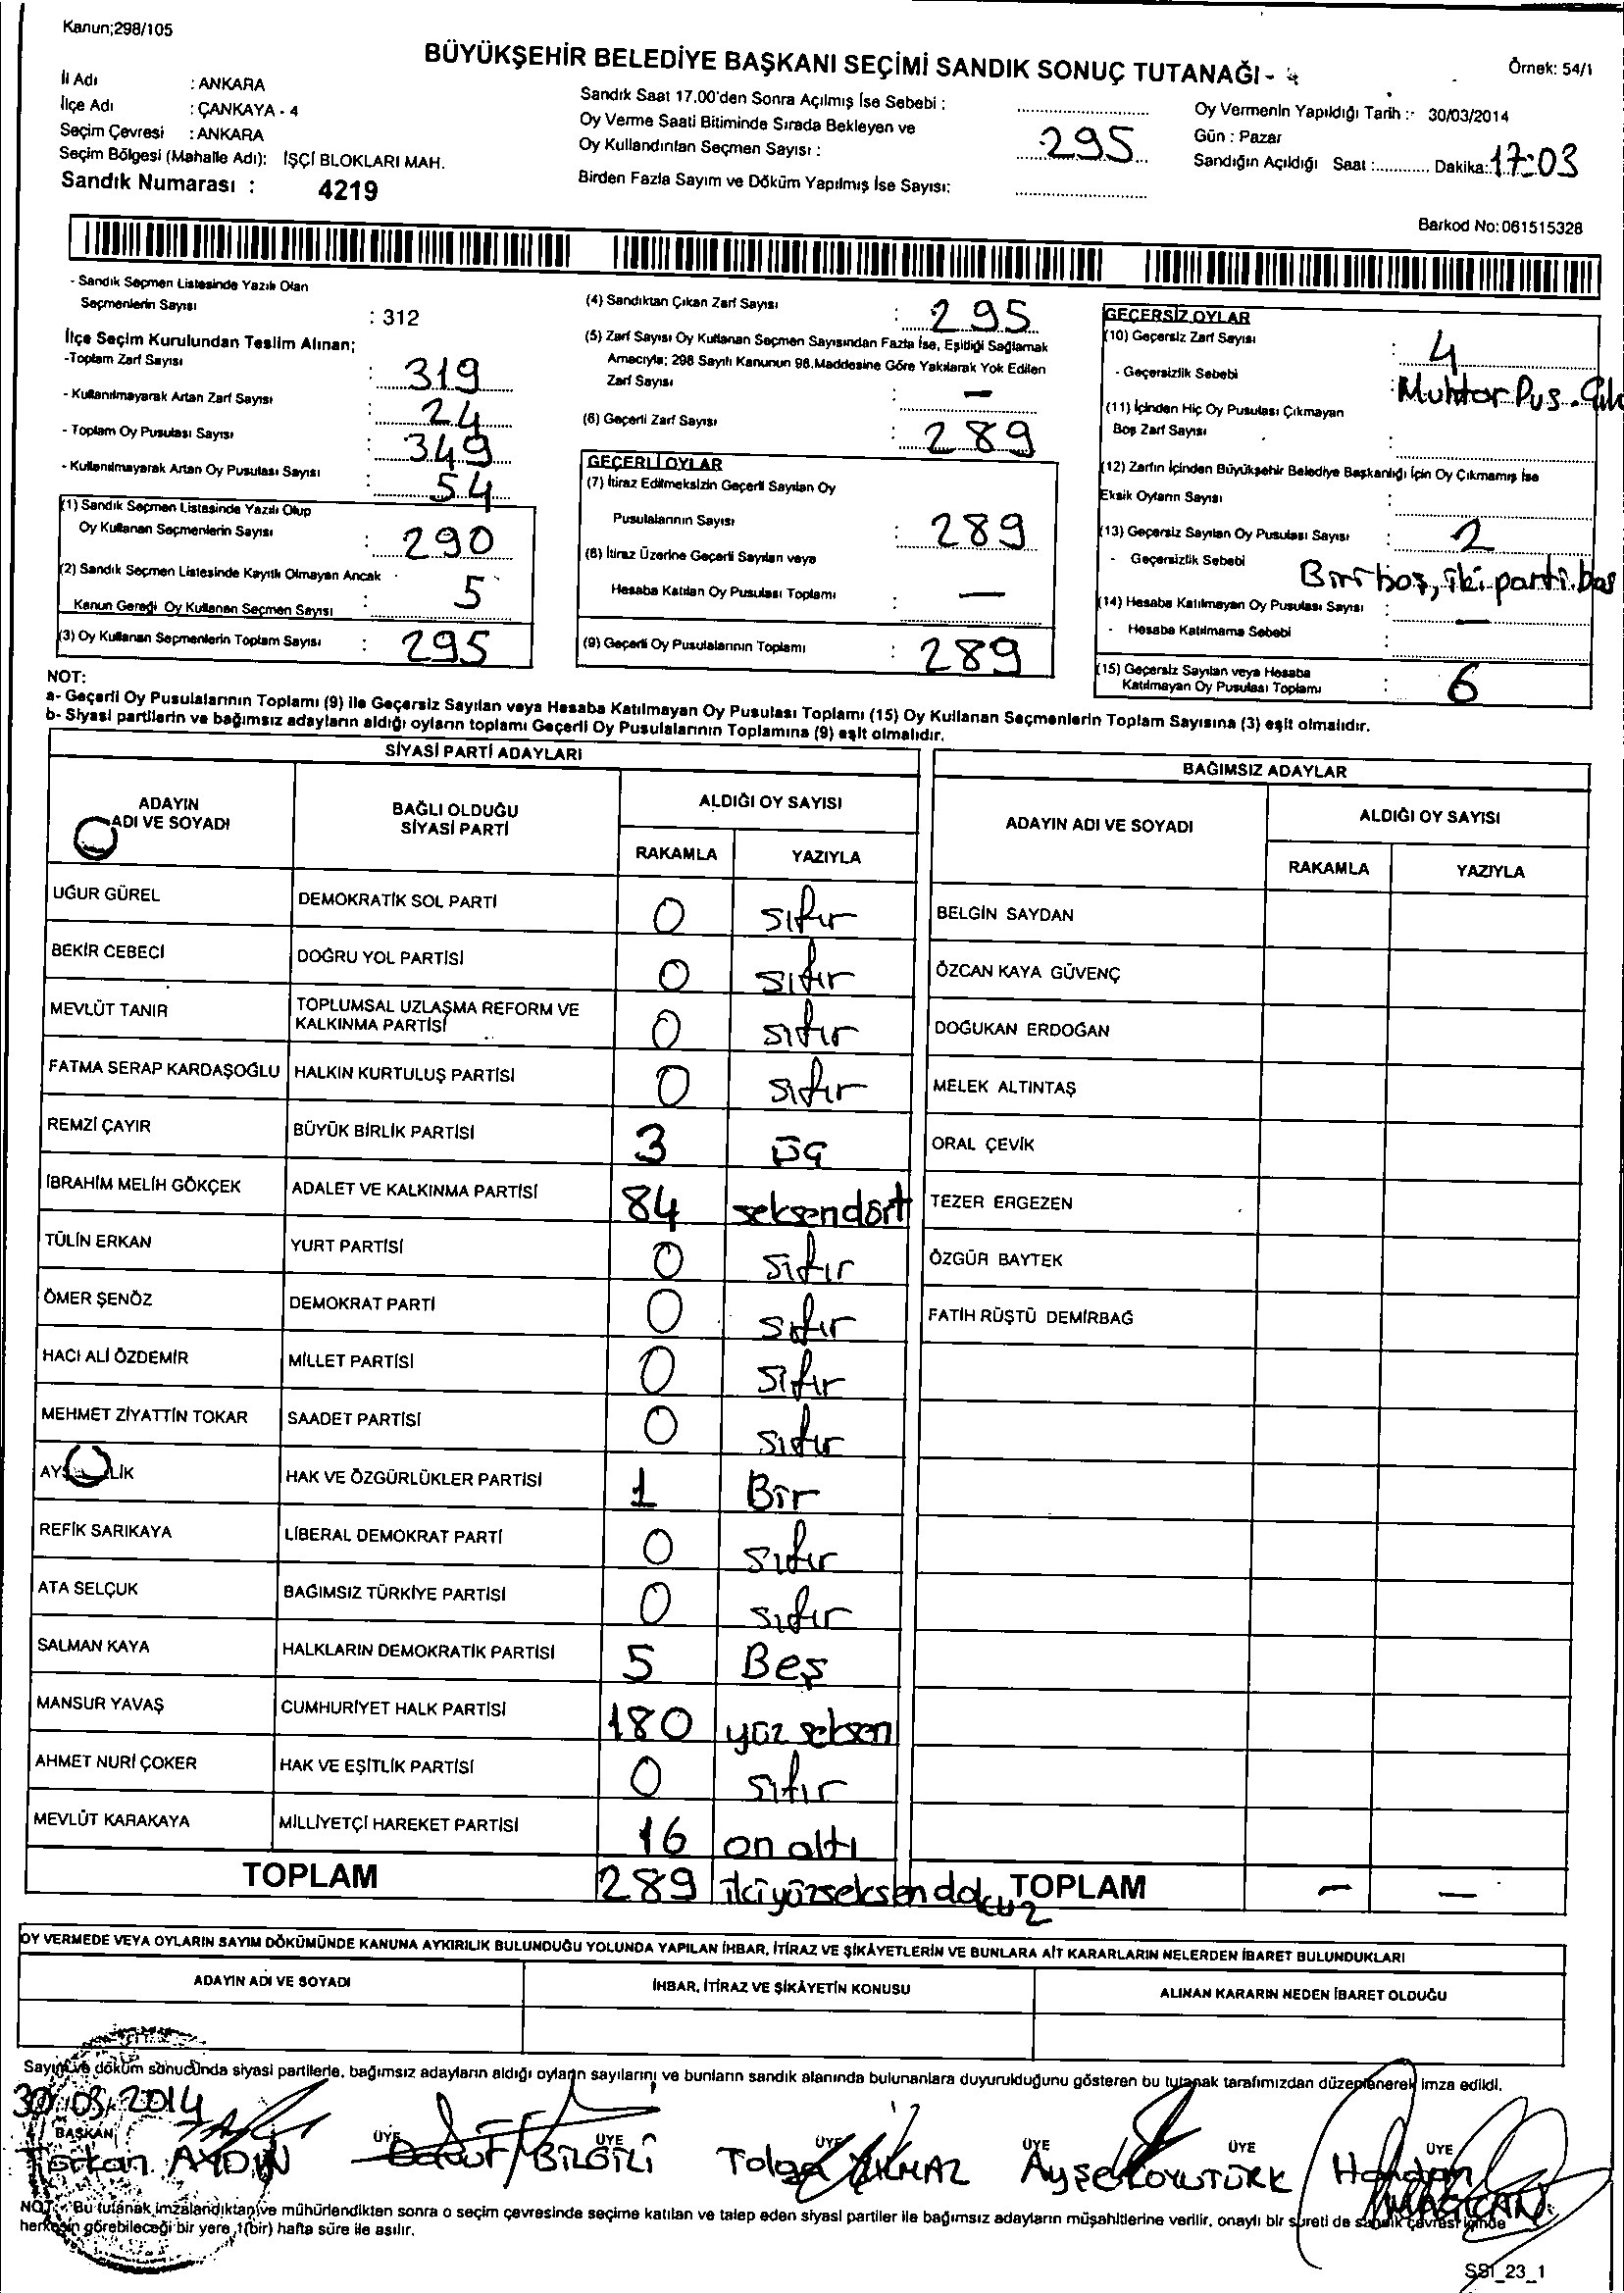 Kanun;298/105
BÜYÜKŞEHİR BELEDİYE BAŞKANI SEÇİMİ SANDIK SONUÇ TUTANAĞI - 4
Örnek: 54/1
İl Adı : ANKARA
İlçe Adı : ÇANKAYA - 4
Seçim Çevresi : ANKARA
Seçim Bölgesi (Mahalle Adı): İŞÇİ BLOKLARI MAH.
Sandık Numarası : 4219
Sandık Saat 17.00'den Sonra Açılmış İse Sebebi :
Oy Verme Saati Bitiminde Sırada Bekleyen ve
Oy Kullandırılan Seçmen Sayısı : 295
Birden Fazla Sayım ve Döküm Yapılmış İse Sayısı:
Oy Vermenin Yapıldığı Tarih : 30/03/2014
Gün : Pazar
Sandığın Açıldığı Saat :............ Dakika: 17:03
Barkod No:061515328
- Sandık Seçmen Listesinde Yazılı Olan
Seçmenlerin Sayısı : 312
İlçe Seçim Kurulundan Teslim Alınan;
-Toplam Zarf Sayısı : 319
- Kullanılmayarak Artan Zarf Sayısı : 24
- Toplam Oy Pusulası Sayısı : 349
- Kullanılmayarak Artan Oy Pusulası Sayısı : 54
(1) Sandık Seçmen Listesinde Yazılı Olup
Oy Kullanan Seçmenlerin Sayısı : 290
(2) Sandık Seçmen Listesinde Kayıtlı Olmayan Ancak
Kanun Gereği Oy Kullanan Seçmen Sayısı : 5
(3) Oy Kullanan Seçmenlerin Toplam Sayısı : 295
(4) Sandıktan Çıkan Zarf Sayısı : 295
(5) Zarf Sayısı Oy Kullanan Seçmen Sayısından Fazla İse, Eşitliği Sağlamak
Amacıyla; 298 Sayılı Kanunun 98.Maddesine Göre Yakılarak Yok Edilen
Zarf Sayısı : —
(6) Geçerli Zarf Sayısı : 289
GEÇERLİ OYLAR
(7) İtiraz Edilmeksizin Geçerli Sayılan Oy
Pusulalarının Sayısı : 289
(8) İtiraz Üzerine Geçerli Sayılan veya
Hesaba Katılan Oy Pusulası Toplamı : —
(9) Geçerli Oy Pusulalarının Toplamı : 289
GEÇERSİZ OYLAR
(10) Geçersiz Zarf Sayısı : 4
- Geçersizlik Sebebi : Muhtar Pus.
(11) İçinden Hiç Oy Pusulası Çıkmayan
Boş Zarf Sayısı :
(12) Zarfın İçinden Büyükşehir Belediye Başkanlığı İçin Oy Çıkmamış İse
Eksik Oyların Sayısı :
(13) Geçersiz Sayılan Oy Pusulası Sayısı : 2
- Geçersizlik Sebebi Biri boş, iki parti bas
(14) Hesaba Katılmayan Oy Pusulası Sayısı : —
- Hesaba Katılmama Sebebi :
(15) Geçersiz Sayılan veya Hesaba
Katılmayan Oy Pusulası Toplamı : 6
NOT:
a- Geçerli Oy Pusulalarının Toplamı (9) ile Geçersiz Sayılan veya Hesaba Katılmayan Oy Pusulası Toplamı (15) Oy Kullanan Seçmenlerin Toplam Sayısına (3) eşit olmalıdır.
b- Siyasi partilerin ve bağımsız adayların aldığı oyların toplamı Geçerli Oy Pusulalarının Toplamına (9) eşit olmalıdır.
SİYASİ PARTİ ADAYLARI
ADAYIN ADI VE SOYADI BAĞLI OLDUĞU SİYASİ PARTİ ALDIĞI OY SAYISI
RAKAMLA YAZIYLA
UĞUR GÜREL DEMOKRATİK SOL PARTİ 0 sıfır
BEKİR CEBECİ DOĞRU YOL PARTİSİ 0 sıfır
MEVLÜT TANIR TOPLUMSAL UZLAŞMA REFORM VE KALKINMA PARTİSİ 0 sıfır
FATMA SERAP KARDAŞOĞLU HALKIN KURTULUŞ PARTİSİ 0 sıfır
REMZİ ÇAYIR BÜYÜK BİRLİK PARTİSİ 3 üç
İBRAHİM MELİH GÖKÇEK ADALET VE KALKINMA PARTİSİ 84 seksendört
TÜLİN ERKAN YURT PARTİSİ 0 sıfır
ÖMER ŞENÖZ DEMOKRAT PARTİ 0 sıfır
HACI ALİ ÖZDEMİR MİLLET PARTİSİ 0 sıfır
MEHMET ZİYATTİN TOKAR SAADET PARTİSİ 0 sıfır
HAK VE ÖZGÜRLÜKLER PARTİSİ 1 Bir
REFİK SARIKAYA LİBERAL DEMOKRAT PARTİ 0 sıfır
ATA SELÇUK BAĞIMSIZ TÜRKİYE PARTİSİ 0 sıfır
SALMAN KAYA HALKLARIN DEMOKRATİK PARTİSİ 5 Beş
MANSUR YAVAŞ CUMHURİYET HALK PARTİSİ 180 yüz seksen
AHMET NURİ ÇOKER HAK VE EŞİTLİK PARTİSİ 0 sıfır
MEVLÜT KARAKAYA MİLLİYETÇİ HAREKET PARTİSİ 16 on altı
TOPLAM 289 ikiyüzseksendokuz
BAĞIMSIZ ADAYLAR
ADAYIN ADI VE SOYADI ALDIĞI OY SAYISI
RAKAMLA YAZIYLA
BELGİN SAYDAN
ÖZCAN KAYA GÜVENÇ
DOĞUKAN ERDOĞAN
MELEK ALTINTAŞ
ORAL ÇEVİK
TEZER ERGEZEN
ÖZGÜR BAYTEK
FATİH RÜŞTÜ DEMİRBAĞ
TOPLAM — —
OY VERMEDE VEYA OYLARIN SAYIM DÖKÜMÜNDE KANUNA AYKIRILIK BULUNDUĞU YOLUNDA YAPILAN İHBAR, İTİRAZ VE ŞİKÂYETLERİN VE BUNLARA AİT KARARLARIN NELERDEN İBARET BULUNDUKLARI
ADAYIN ADI VE SOYADI İHBAR, İTİRAZ VE ŞİKÂYETİN KONUSU ALINAN KARARIN NEDEN İBARET OLDUĞU
Sayım ve döküm sonucunda siyasi partilerle, bağımsız adayların aldığı oyların sayılarını ve bunların sandık alanında bulunanlara duyurulduğunu gösteren bu tutanak tarafımızdan düzenlenerek imza edildi.
30/03/2014
BAŞKAN ÜYE ÜYE ÜYE ÜYE ÜYE ÜYE
AYDIN BİLGİLİ Tolga YILMAZ Ayşe Handan
NOT : Bu tutanak imzalandıktan ve mühürlendikten sonra o seçim çevresinde seçime katılan ve talep eden siyasi partiler ile bağımsız adayların müşahitlerine verilir, onaylı bir sureti de sandık çevresi içinde
herkesin görebileceği bir yere 1(bir) hafta süre ile asılır.
SS1_23_1